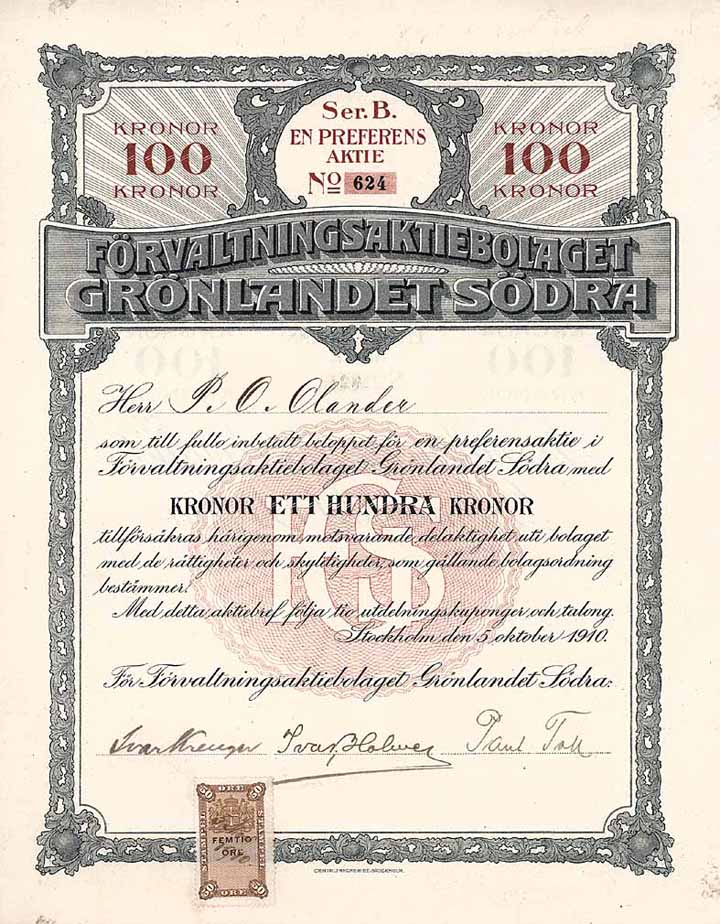 Ser. B.
EN PREFERENS
AKTIE
No 624
KRONOR
100
KRONOR
KRONOR
100
KRONOR
FÖRVALTNINGSAKTIEBOLAGET
GRÖNLANDET SÖDRA
Herr P. O. Olander
som till fullo inbetalt beloppet för en preferensaktie i
Förvaltningsaktiebolaget Grönlandet Södra med
KRONOR ETT HUNDRA KRONOR
tillförsäkras härigenom motsvarande delaktighet uti bolaget
med de rättigheter och skyldigheter, som gällande bolagsordning
bestämmer.
Med detta aktiebref följa tio utdelningskuponger och talong.
Stockholm den 5 oktober 1910.
För Förvaltningsaktiebolaget Grönlandet Södra:
Ivar Kreuger Ivar Holmer Paul Toll
50 ÖRE 50
STÄMPEL
STÄMPEL
FEMTIO
ÖRE
50 ÖRE 50